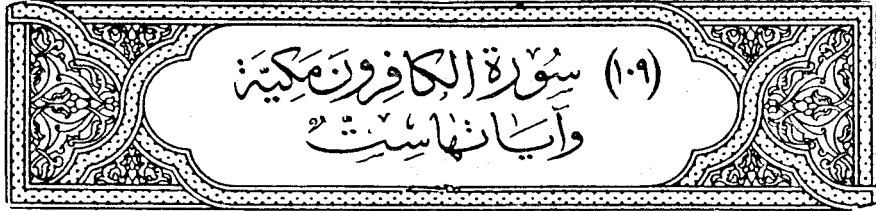 (١٠٩) سُورَة الكافِرونَ مَكِيَّة
وآيَاتهَا سِتٌّ